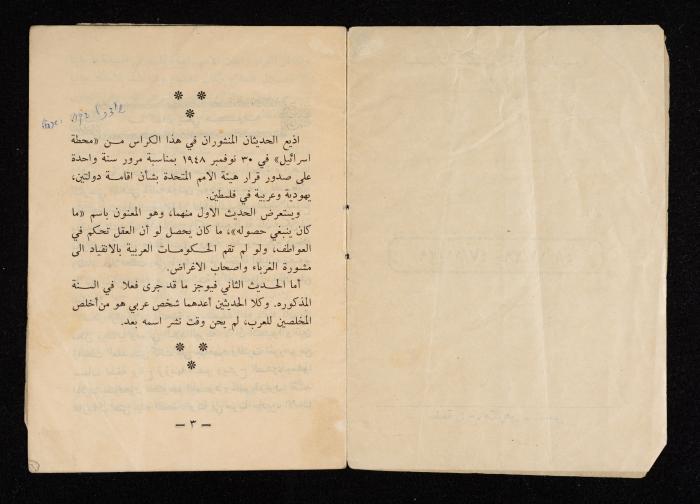 اذيع الحديثان المنشوران في هذا الكراس مـــن «محطة
اسرائيل» في ٣٠ نوفمبر ١٩٤٨ بمناسبة مرور سنة واحدة
على صدور قرار هيئة الامم المتحدة بشأن اقامــة دولتين،
يهودية وعربية في فلسطين.
ويستعرض الحديث الاول منهما، وهو المعنون باسم «ما
كان ينبغي حصوله»، ما كان يحصل لو أن العقل تحكم في
العواطف، ولو لم تقم الحكومات العربية بالانقياد الى
مشورة الغرباء واصحاب الاغراض.
أما الحديث الثاني فيوجز ما قد جرى فعلا في السنة
المذكوره. وكلا الحديثين أعدهما شخص عربي هو من أخلص
المخلصين للعرب، لم يحن وقت نشر اسمه بعد.
— ٣ —